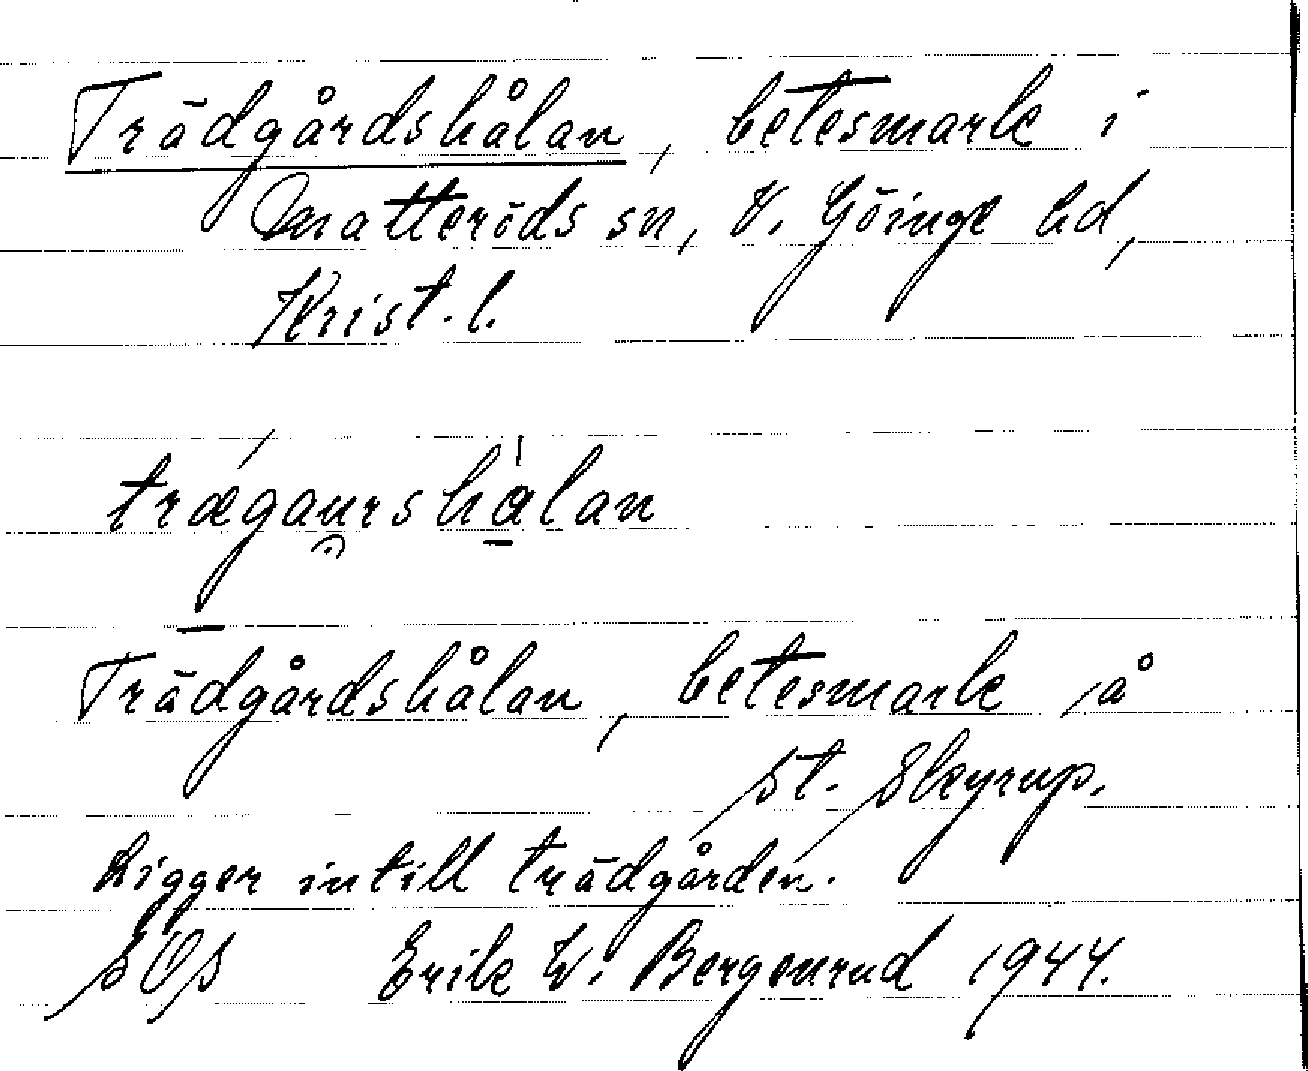 Trädgårdshålan, betesmark i
Matteröds sn, V. Göinge hd,
Krist. l.
trægaurshålan
Trädgårdshålan, betesmark å
St. Skyrup.
Ligger intill trädgården.
SOS Erik W. Bergenrud 1944.